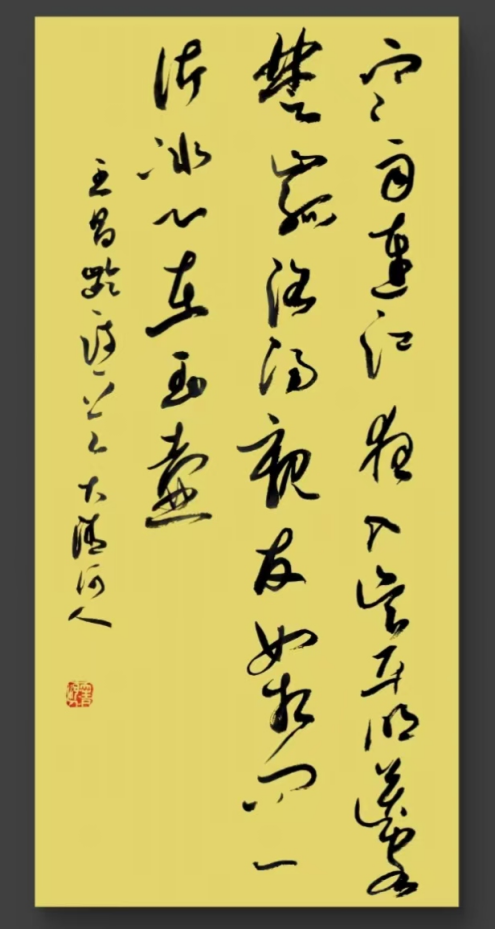 寒雨連江夜入吳平明送客
楚山孤洛陽親友如相問一
片冰心在玉壺
王昌齡詩一首大清河人